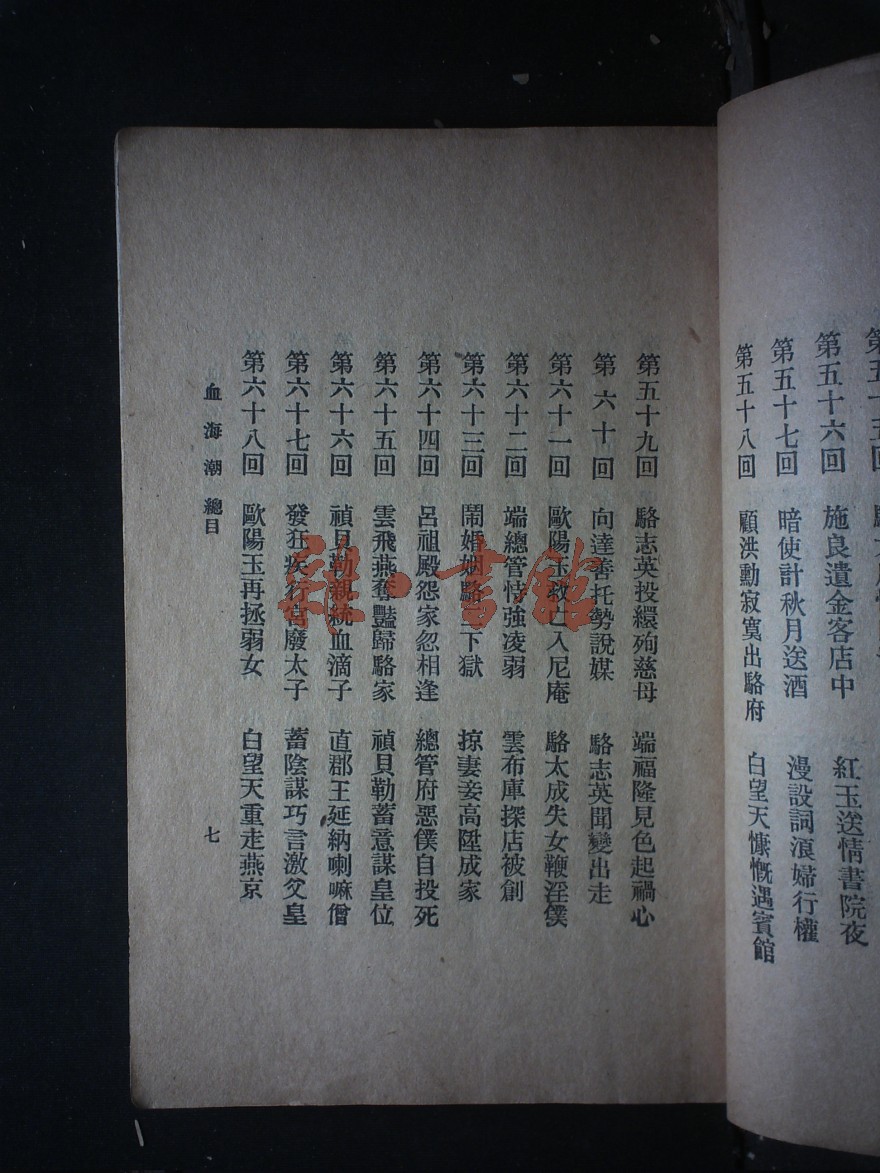 第五十六回　施良遺金客店中　紅玉送情書院夜
第五十七回　暗使計秋月送酒　漫設詞浪婦行權
第五十八回　顧洪勳寂寞出駱府　白望天慷慨遇賓館
第五十九回　駱志英投繯殉慈母　端福隆見色起禍心
第六十回　向達善托勢說媒　駱志英聞變出走
第六十一回　歐陽玉救亡入尼庵　駱太成失女鞭淫僕
第六十二回　端總管恃強凌弱　雲布庫探店被創
第六十三回　鬧婚姻駱二下獄　掠妻妾高陞成家
第六十四回　呂祖殿怨家忽相逢　總管府惡僕自投死
第六十五回　雲飛燕奪豔歸駱家　禎貝勒蓄意謀皇位
第六十六回　禎貝勒親統血滴子　直郡王延納喇嘛僧
第六十七回　發狂疾行宮廢太子　蓄陰謀巧言激父皇
第六十八回　歐陽玉再拯弱女　白望天重走燕京
血海潮　總目
七
書館